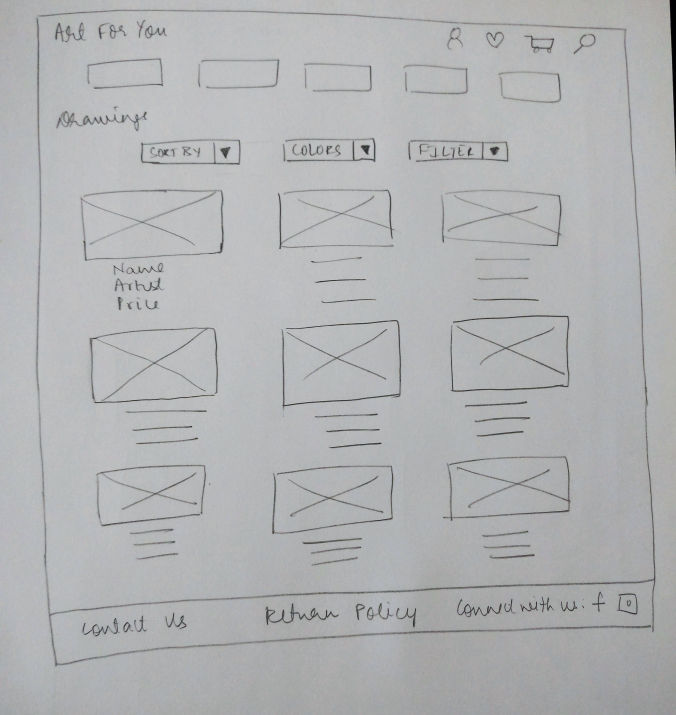 Art For You
Drawings
SORT BY
COLORS
FILTER
Name
Artist
Price
Contact Us
Return Policy
Connect with us: f